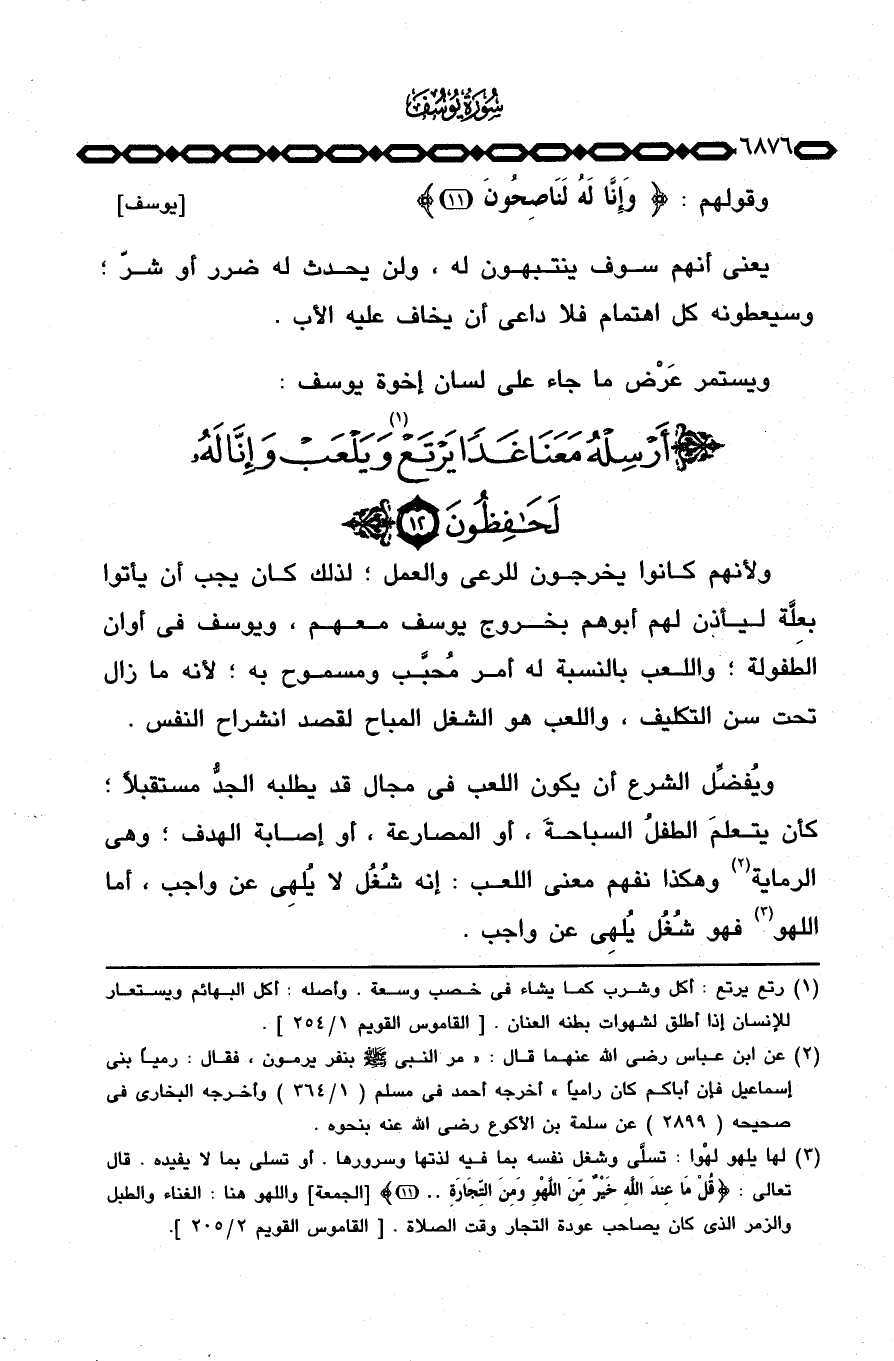 سُورَةُ يُوسُفَ
٦٨٧٦
وقولهم : ﴿ وَإِنَّا لَهُ لَنَاصِحُونَ (١١) ﴾ [يوسف]
يعنى أنهم سوف ينتبهون له ، ولن يحدث له ضرر أو شرّ ؛
وسيعطونه كل اهتمام فلا داعى أن يخاف عليه الأب .
ويستمر عَرْض ما جاء على لسان إخوة يوسف :
﴿ أَرْسِلْهُ مَعَنَا غَدًا يَرْتَعْ (١) وَيَلْعَبْ وَإِنَّا لَهُۥ
لَحَٰفِظُونَ ١٢ ﴾
ولأنهم كانوا يخرجون للرعى والعمل ؛ لذلك كان يجب أن يأتوا
بعلَّة ليأذن لهم أبوهم بخروج يوسف معهم ، ويوسف فى أوان
الطفولة ؛ واللعب بالنسبة له أمر مُحبَّب ومسموح به ؛ لأنه ما زال
تحت سن التكليف ، واللعب هو الشغل المباح لقصد انشراح النفس .
ويُفضِّل الشرع أن يكون اللعب فى مجال قد يطلبه الجدُّ مستقبلاً ؛
كأن يتعلمَ الطفلُ السباحةَ ، أو المصارعة ، أو إصابة الهدف ؛ وهى
الرماية (٢) وهكذا نفهم معنى اللعب : إنه شُغُل لا يُلهِى عن واجب ، أما
اللهو (٣) فهو شُغُل يُلهِى عن واجب .
(١) رتع يرتع : أكل وشرب كما يشاء فى خصب وسعة . وأصله : أكل البهائم ويستعار
للإنسان إذا أطلق لشهوات بطنه العنان . [ القاموس القويم ٢٥٤/١ ] .
(٢) عن ابن عباس رضى الله عنهما قال : « مر النبى ﷺ بنفر يرمون ، فقال : رمياً بنى
إسماعيل فإن أباكم كان رامياً » أخرجه أحمد فى مسلم ( ٣٦٤/١ ) وأخرجه البخارى فى
صحيحه ( ٢٨٩٩ ) عن سلمة بن الأكوع رضى الله عنه بنحوه .
(٣) لها يلهو لهْوا : تسلَّى وشغل نفسه بما فيه لذتها وسرورها . أو تسلى بما لا يفيده . قال
تعالى : ﴿ قُلْ مَا عِندَ اللَّهِ خَيْرٌ مِّنَ اللَّهْوِ وَمِنَ التِّجَارَةِ .. (١١) ﴾ [الجمعة] واللهو هنا : الغناء والطبل
والزمر الذى كان يصاحب عودة التجار وقت الصلاة . [ القاموس القويم ٢٠٥/٢ ].